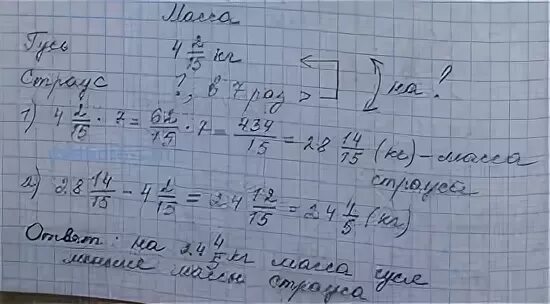 Масса
Гусь 4 2/15 кг
Страус ?, в 7 раз > на ?
1) 4 2/15 · 7 = 62/15 · 7 = 434/15 = 28 14/15 (кг) - масса
страуса
2) 28 14/15 - 4 2/15 = 24 12/15 = 24 4/5 (кг)
Ответ: на 24 4/5 кг масса гуся
меньше массы страуса